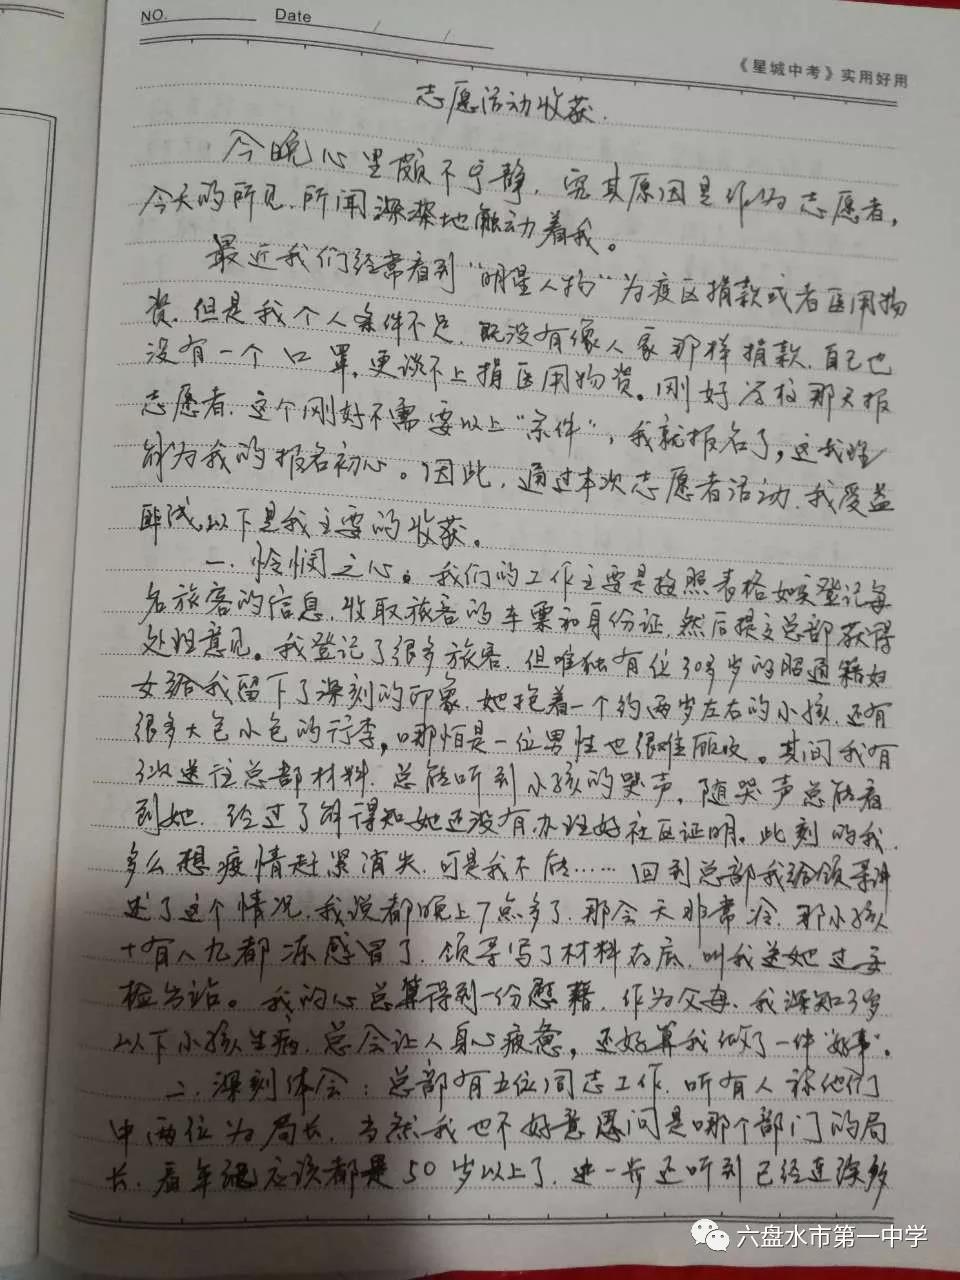 NO.
Date / /
《星城中考》实用好用
志愿活动收获.
今晚心里颇不宁静，究其原因是作为志愿者，
今天的所见、所闻深深地触动着我。
最近我们经常看到“明星人物”为疫区捐款或者医用物
资，但是我个人条件不足，既没有像人家那样捐款，自己也
没有一个口罩，更谈不上捐医用物资。刚好学校那天报
志愿者，这个刚好不需要以上“条件”，我就报名了，这我理
解为我的报名初心。因此，通过本次志愿者活动，我受益
匪浅，以下是我主要的收获。
一、怜悯之心：我们的工作主要是按照表格如实登记每
名旅客的信息，收取旅客的车票和身份证，然后提交总部获得
处理意见。我登记了很多旅客，但唯独有位30多岁的昭通籍妇
女给我留下了深刻的印象，她抱着一个约两岁左右的小孩，还有
很多大包小包的行李，哪怕是一位男性也很难顾及。其间我有
3次送往总部材料，总能听到小孩的哭声，随哭声总能看
到她，经过了解得知她还没有办理好社区证明。此刻的我，
多么想疫情赶紧消失，可是我不能……回到总部我给领导讲
述了这个情况，我说都晚上7点多了，那会天非常冷，那小孩
十有八九都冻感冒了，领导写了材料存底，叫我送她过安
检出站。我的心总算得到一份慰藉，作为父母，我深知3岁
以下小孩生病，总会让人身心疲惫，还好算我做了一件“好事”。
二、深刻体会：总部有五位同志工作，听有人称他们
中两位为局长，当然我也不好意思问是哪个部门的局
长，看年纪应该都是50岁以上了，进一步还听到已经连续多
六盘水市第一中学